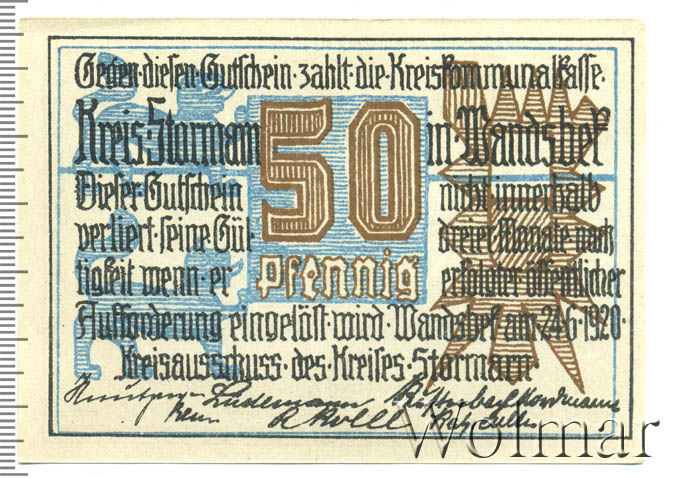 Gegen·diesen·Gutschein·zahlt·die·Kreiskommunalkasse·
Kreis·Stormarn 50 in·Wandsbek
Dieser·Gutschein nicht·innerhalb
verliert·seine·Gül- dreier·Monate·nach
tigkeit wenn·er Pfennig erfolgter·öffentlicher
Aufforderung eingelöst·wird·Wandsbek am 24·6·1920·
Kreisausschuss·des·Kreises·Stormarn·
Lüdemann
Wolmar